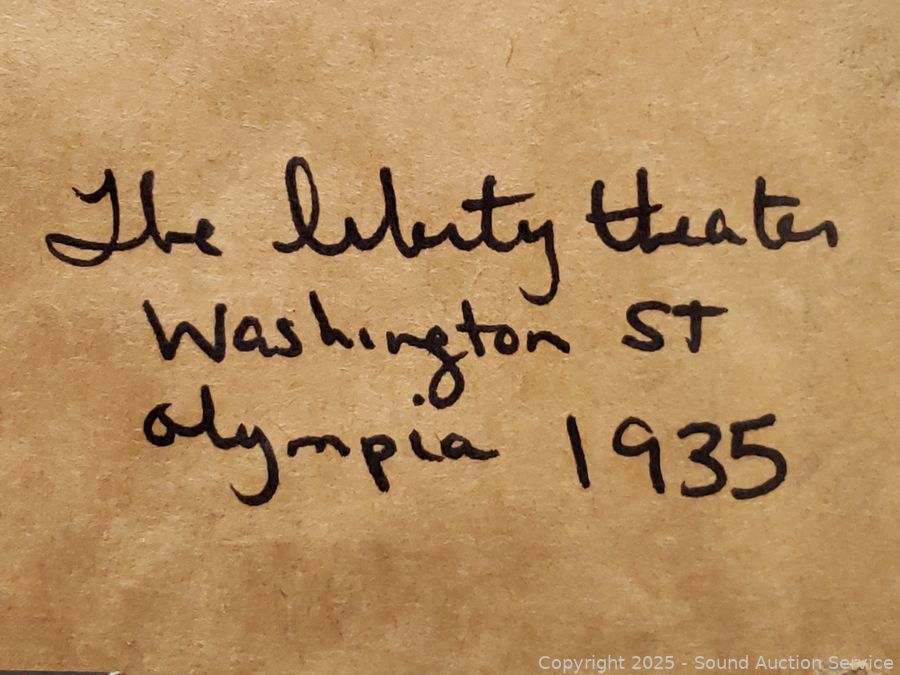 The liberty theater
Washington ST
Olympia 1935
Copyright 2025 - Sound Auction Service